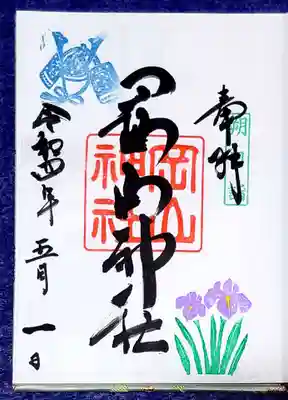 奉拝
朔日詣
岡山神社
岡山神社
令和四年五月一日